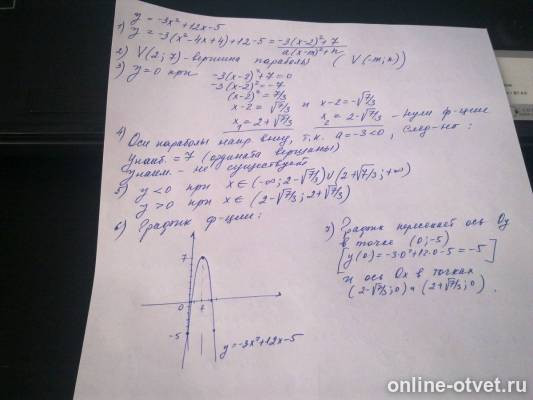 y = -3x²+12x-5
1) y = -3(x²-4x+4)+12-5 = -3(x-2)²+7
a(x-m)²+n
2) V(2;7) - вершина параболы (V(-m;n))
3) y=0 при -3(x-2)²+7=0
-3(x-2)²=-7
(x-2)²=7/3
x-2=√7/3 и x-2=-√7/3
x₁=2+√7/3 x₂=2-√7/3 - нули ф-ции
4) Оси параболы напр. вниз, т.к. a=-3<0, след-но:
yнаиб.=7 (ордината вершины)
yнаим. - не существует
5) y<0 при x∈(-∞;2-√7/3)∪(2+√7/3;+∞)
y>0 при x∈(2-√7/3;2+√7/3)
6) График ф-ции:
7
0
-5
y=-3x²+12x-5
7) График пересекает ось Oy
в точке (0;-5)
[y(0)=-3·0²+12·0-5=-5]
и ось Ox в точках
(2-√7/3;0) и (2+√7/3;0).
online-otvet.ru